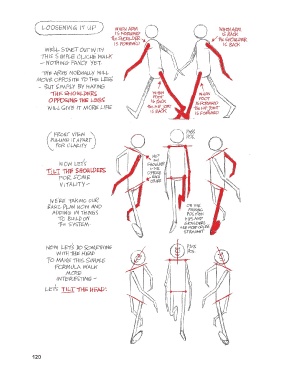 LOOSENING IT UP
WE'LL START OUT WITH
THIS SIMPLE CLICHÉ WALK
- NOTHING FANCY YET.
THE ARMS NORMALLY WILL
MOVE OPPOSITE TO THE LEGS
- BUT SIMPLY BY HAVING
THE SHOULDERS
OPPOSING THE LEGS
WILL GIVE IT MORE LIFE
WHEN ARM
IS FORWARD
THE SHOULDER
IS FORWARD
WHEN ARM
IS BACK
THE SHOULDER
IS BACK
WHEN
FOOT
IS BACK
THE HIP JOINT
IS BACK
WHEN
FOOT
IS FORWARD
THE HIP JOINT
IS FORWARD
FRONT VIEW
PULLING IT APART
FOR CLARITY
NOW LET'S
TILT THE SHOULDERS
FOR SOME
VITALITY -
WE'RE TAKING OUR
BASIC PLAN NOW AND
ADDING IN THINGS
TO BUILD ON
THE SYSTEM.
PASS
POS.
SHOULDER
ON THE
PASSING
POSITION
HIPS AND
SHOULDERS
STRAIGHT
NOW LET'S DO SOMETHING
WITH THE HEAD
TO MAKE THIS SIMPLE
FORMULA WALK
MORE
INTERESTING -
LET'S TILT THE HEAD:
PASS
POS.
120